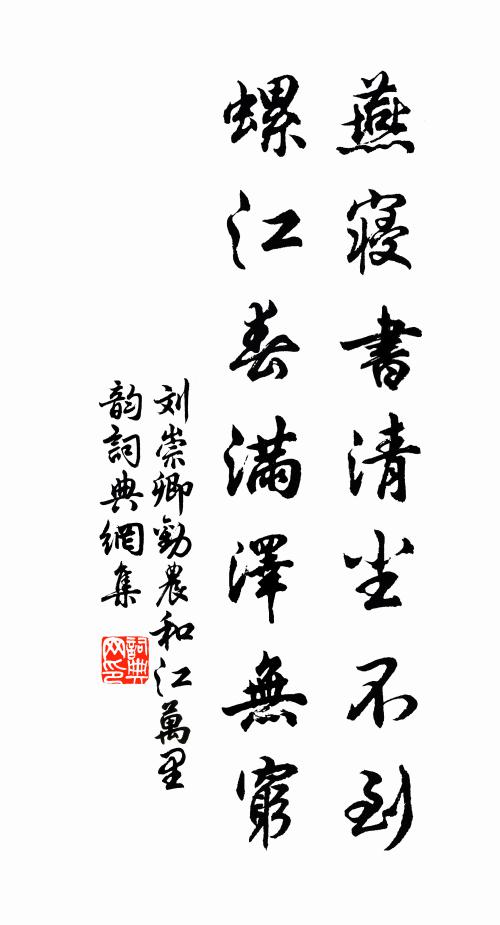 燕寢書清尘不到
螺江春滿澤無窮
刘崇卿勸農和江萬里
韵詞典網集
詞典网印